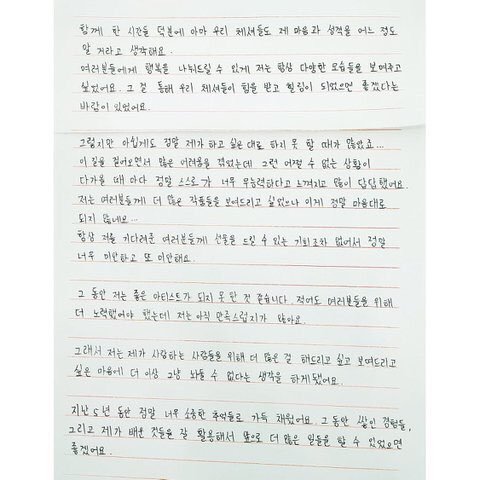 함께 한 시간들 덕분에 아마 우리 체셔들도 제 마음과 성격을 어느 정도
알 거라고 생각해요.
여러분들에게 행복을 나눠드릴 수 있게 저는 항상 다양한 모습들을 보여주고
싶었어요. 그 걸 통해 우리 체셔들이 힘을 받고 힐링이 되었으면 좋겠다는
바람이 있었어요.
그렇지만 아쉽게도 정말 제가 하고 싶은 대로 하지 못 할 때가 많았죠...
이 길을 걸어오면서 많은 어려움을 겪었는데 그런 어쩔 수 없는 상황이
다가올 때 마다 정말 스스로가 너무 무능력하다고 느껴지고 많이 답답했어요.
저는 여러분들께 더 많은 작품들을 보여드리고 싶었으나 이게 정말 마음대로
되지 않네요...
항상 저를 기다려준 여러분들께 선물을 드릴 수 있는 기회조차 없어서 정말
너무 미안하고 또 미안해요.
그 동안 저는 좋은 아티스트가 되지 못 한 것 같습니다. 적어도 여러분들을 위해
더 노력했어야 했는데 저는 아직 만족스럽지가 않아요.
그래서 저는 제가 사랑하는 사람들을 위해 더 많은 걸 해드리고 싶고 보여드리고
싶은 마음에 더 이상 그냥 놔둘 수 없다는 생각을 하게됐어요.
지난 5년 동안 정말 너무 소중한 추억들로 가득 채웠어요. 그 동안 쌓인 경험들,
그리고 제가 배운 것들을 잘 활용해서 앞으로 더 많은 일들을 할 수 있었으면
좋겠어요.